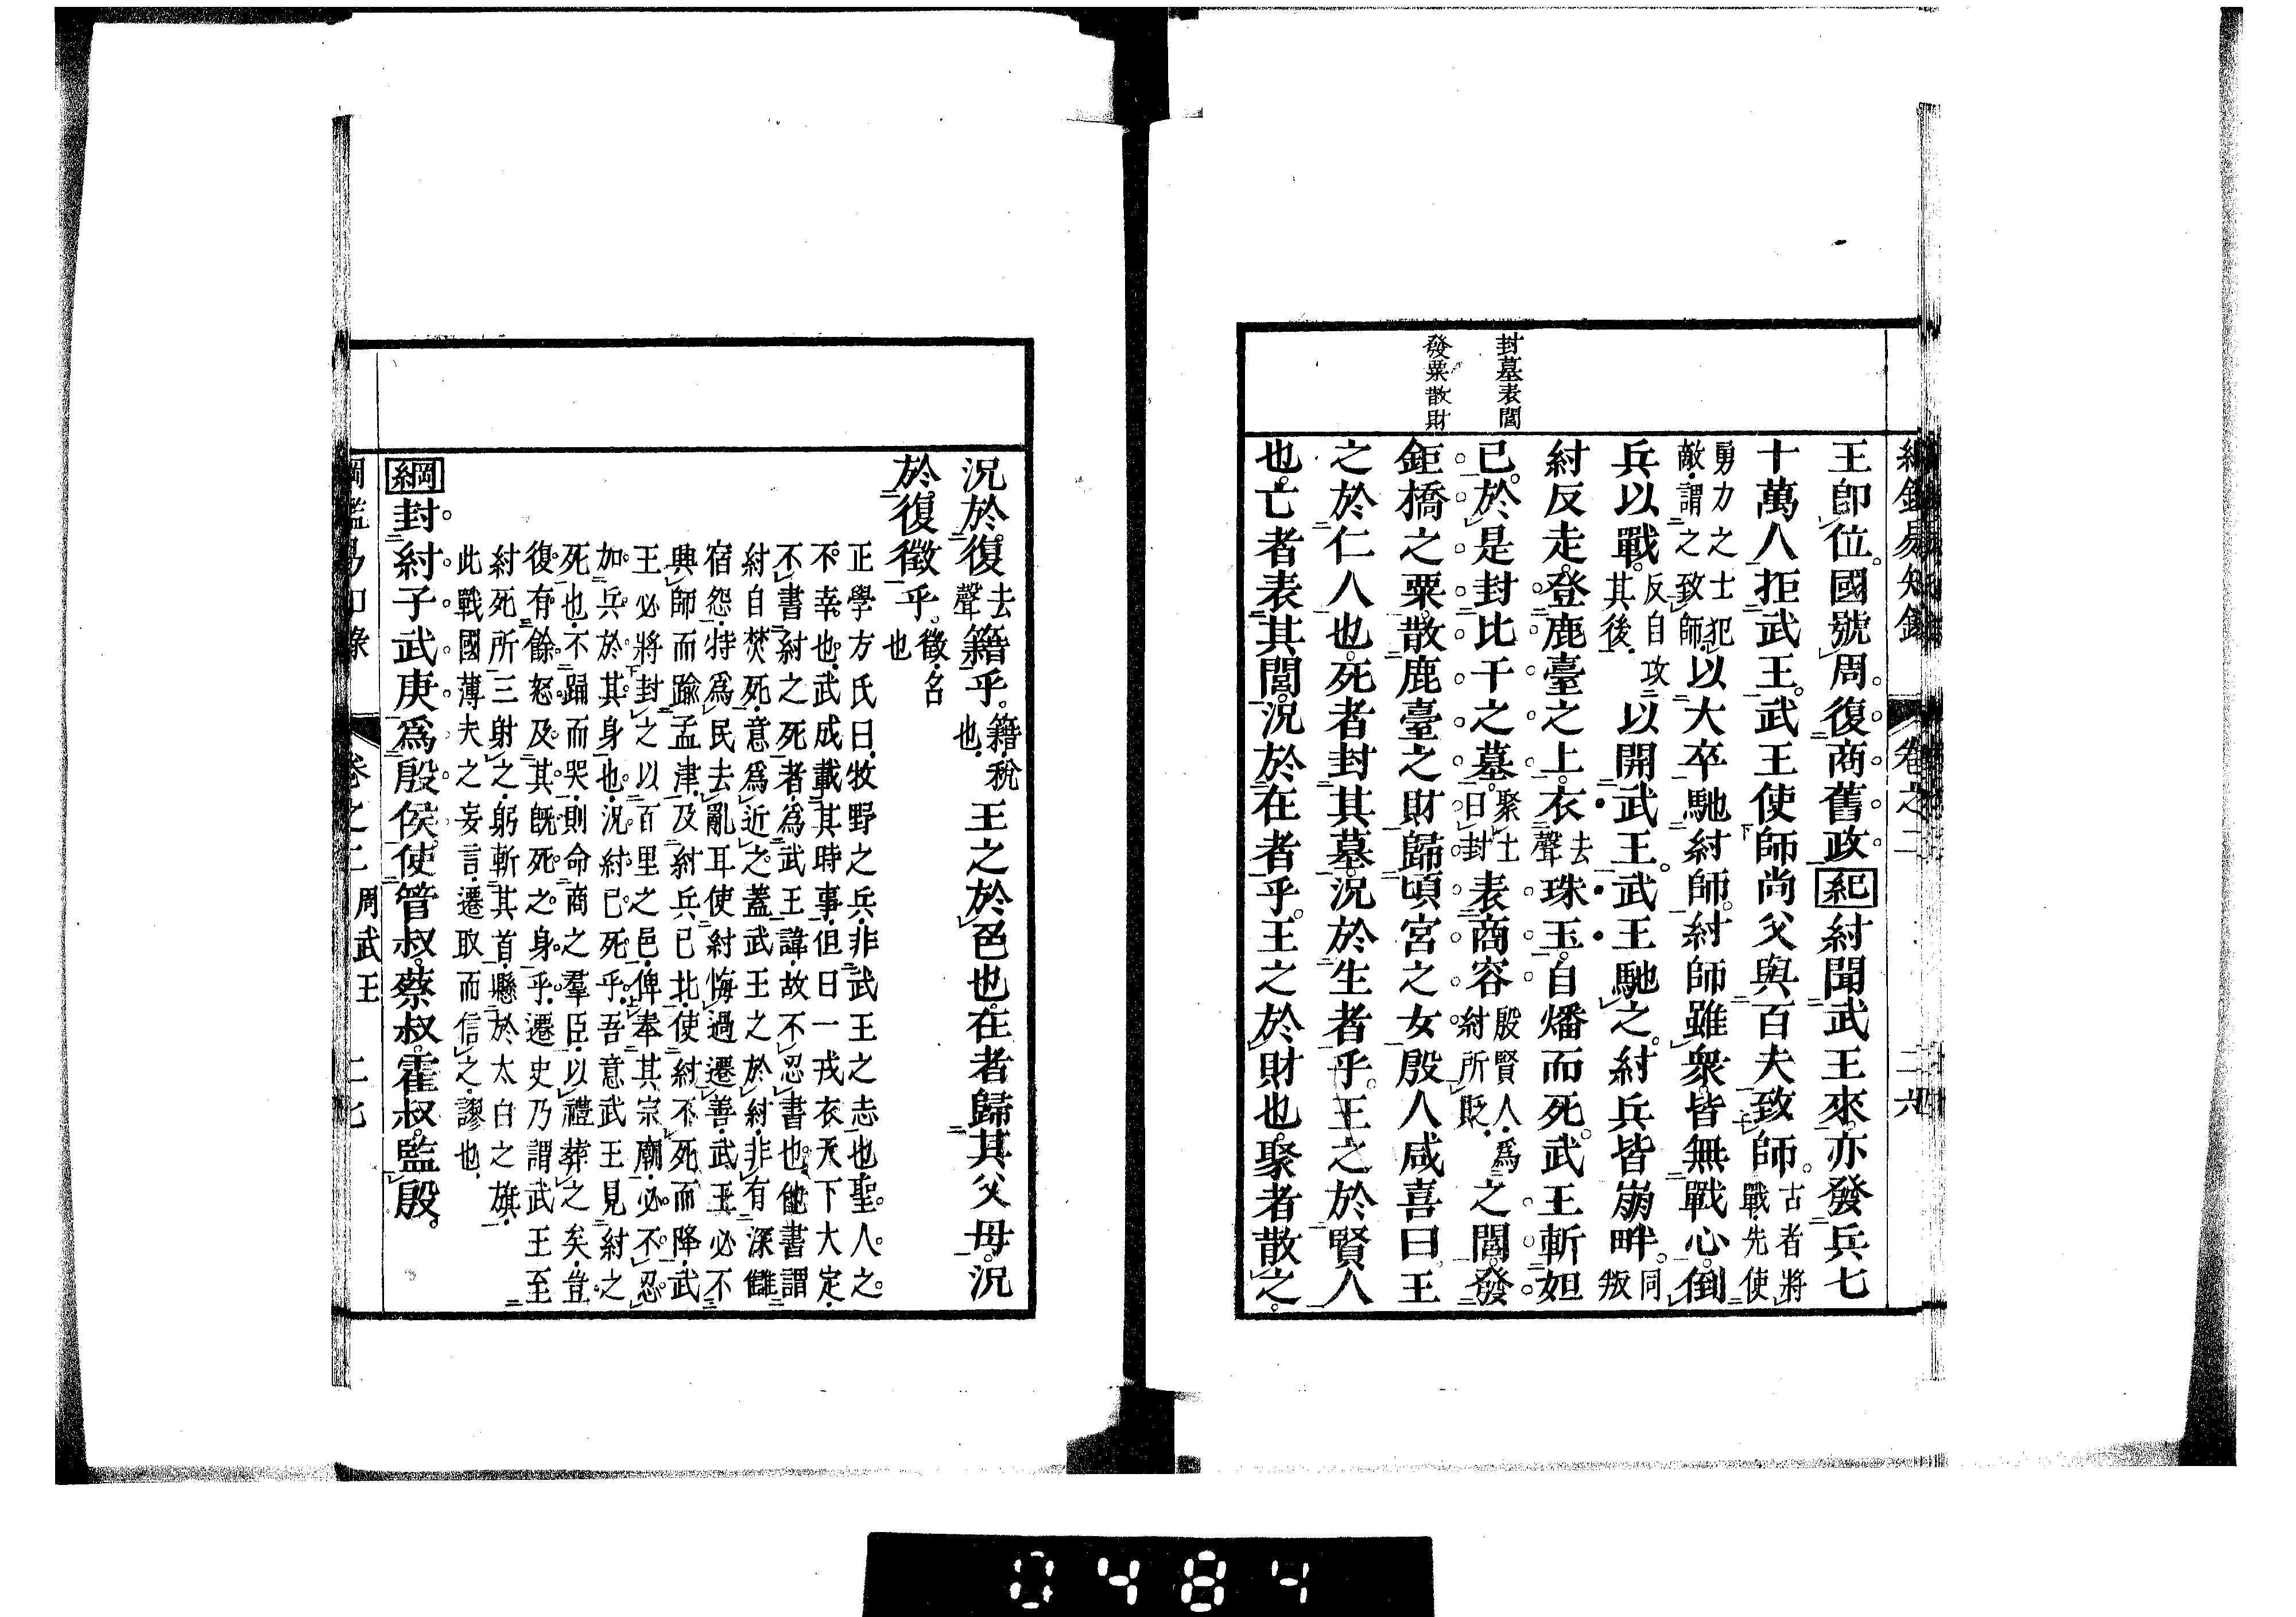 綱鑑易知錄 卷之二 二六
封墓表閭
發粟散財
王卽位。國號周。復商舊政。紀紂聞武王來。亦發兵七
十萬人拒武王。武王使師尚父與百夫致師。古者將戰。先使
勇力之士犯敵。謂之致師。以大卒馳紂師。紂師雖衆。皆無戰心。倒
兵以戰。反自攻其後。以開武王。武王馳之。紂兵皆崩畔。同叛
紂反走。登鹿臺之上。衣去聲珠玉。自燔而死。武王斬妲
己。於是封比干之墓。聚土曰封表商容殷賢人。爲紂所貶。之閭。發
鉅橋之粟。散鹿臺之財。歸頃宮之女。殷人咸喜曰。王
之於仁人也。死者封其墓。況於生者乎。王之於賢人
也。亡者表其閭。況於在者乎。王之於財也。聚者散之。
況於復去聲籍乎。籍。稅也。王之於色也。在者歸其父母。況
於復徵乎。徵。召也
正學方氏曰。牧野之兵。非武王之志也。聖人之
不幸也。武成載其時事。但曰一戎衣天下大定。
不書紂之死者。爲武王諱。故不忍書也。他書謂
紂自焚死。意爲近之。蓋武王之於紂。非有深讎
宿怨。特爲民去亂耳。使紂悔過遷善。武王必不
興師而踰孟津。及紂兵已北。使紂不死而降。武
王必將封之以百里之邑。俾奉其宗廟。必不忍
加兵於其身也。況紂已死乎。吾意武王見紂之
死也。不踊而哭。則命商之羣臣。以禮葬之矣。豈
復有餘怒及其旣死之身乎。遷史乃謂武王至
紂死所三射之。躬斬其首。懸於太白之旗。
此戰國薄夫之妄言。遷取而信之。謬也。
綱封紂子武庚爲殷侯。使管叔。蔡叔。霍叔。監殷。
綱鑑易知錄 卷之二 周武王 二七
0484